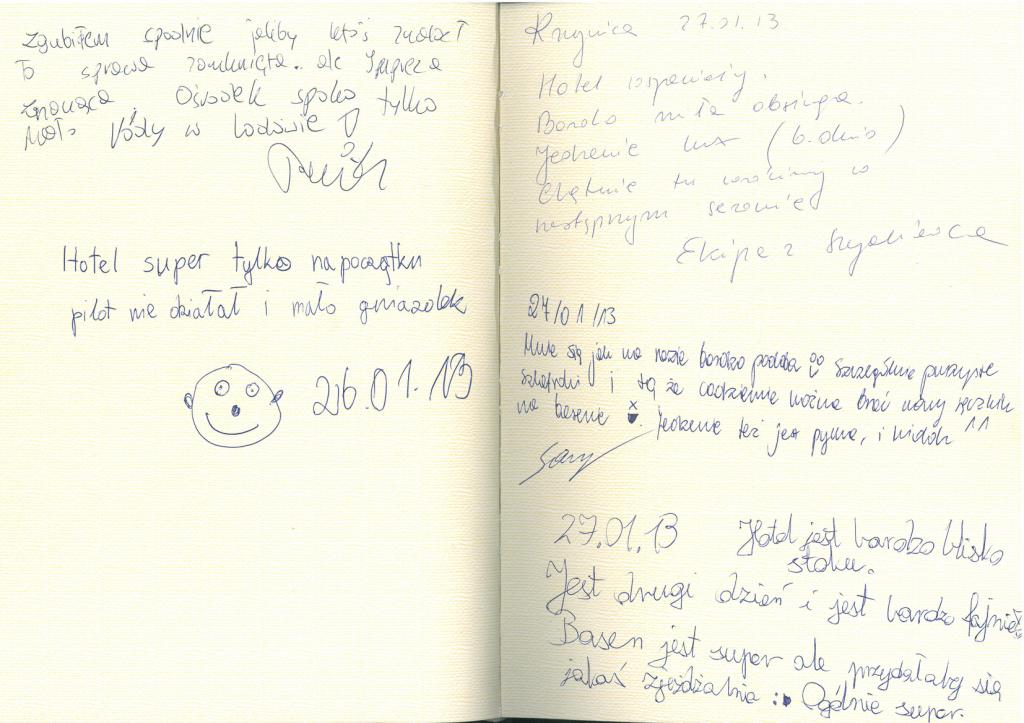 Zgubiłem spodnie jeliby ktoś znalazł
To sprawa zamknięta. ale Impreza
Znacząca Ośrodek spoko tylko
Mało Wódy w lodówie
Hotel super tylko na początku
pilot nie działał i mało gniazdek
26.01.13
Krynica 27.01.13
Hotel wspaniały.
Bardzo miła obsługa.
Jedzenie lux (b. dużo)
Chętnie tu wrócimy w
następnym sezonie
Ekipa z
27/01/13
Mnie się jak na razie bardzo podoba Szczególnie puszyste
szlafroki i to że codziennie można brać nowy ręcznik
na basenie. Jedzenie też jest pyszne, i widok ^^
27.01.13 Hotel jest bardzo blisko
stoku.
Jest drugi dzień i jest bardzo fajnie
Basen jest super ale przydałaby się
jakaś zjeżdżalnia :D Ogólnie super.